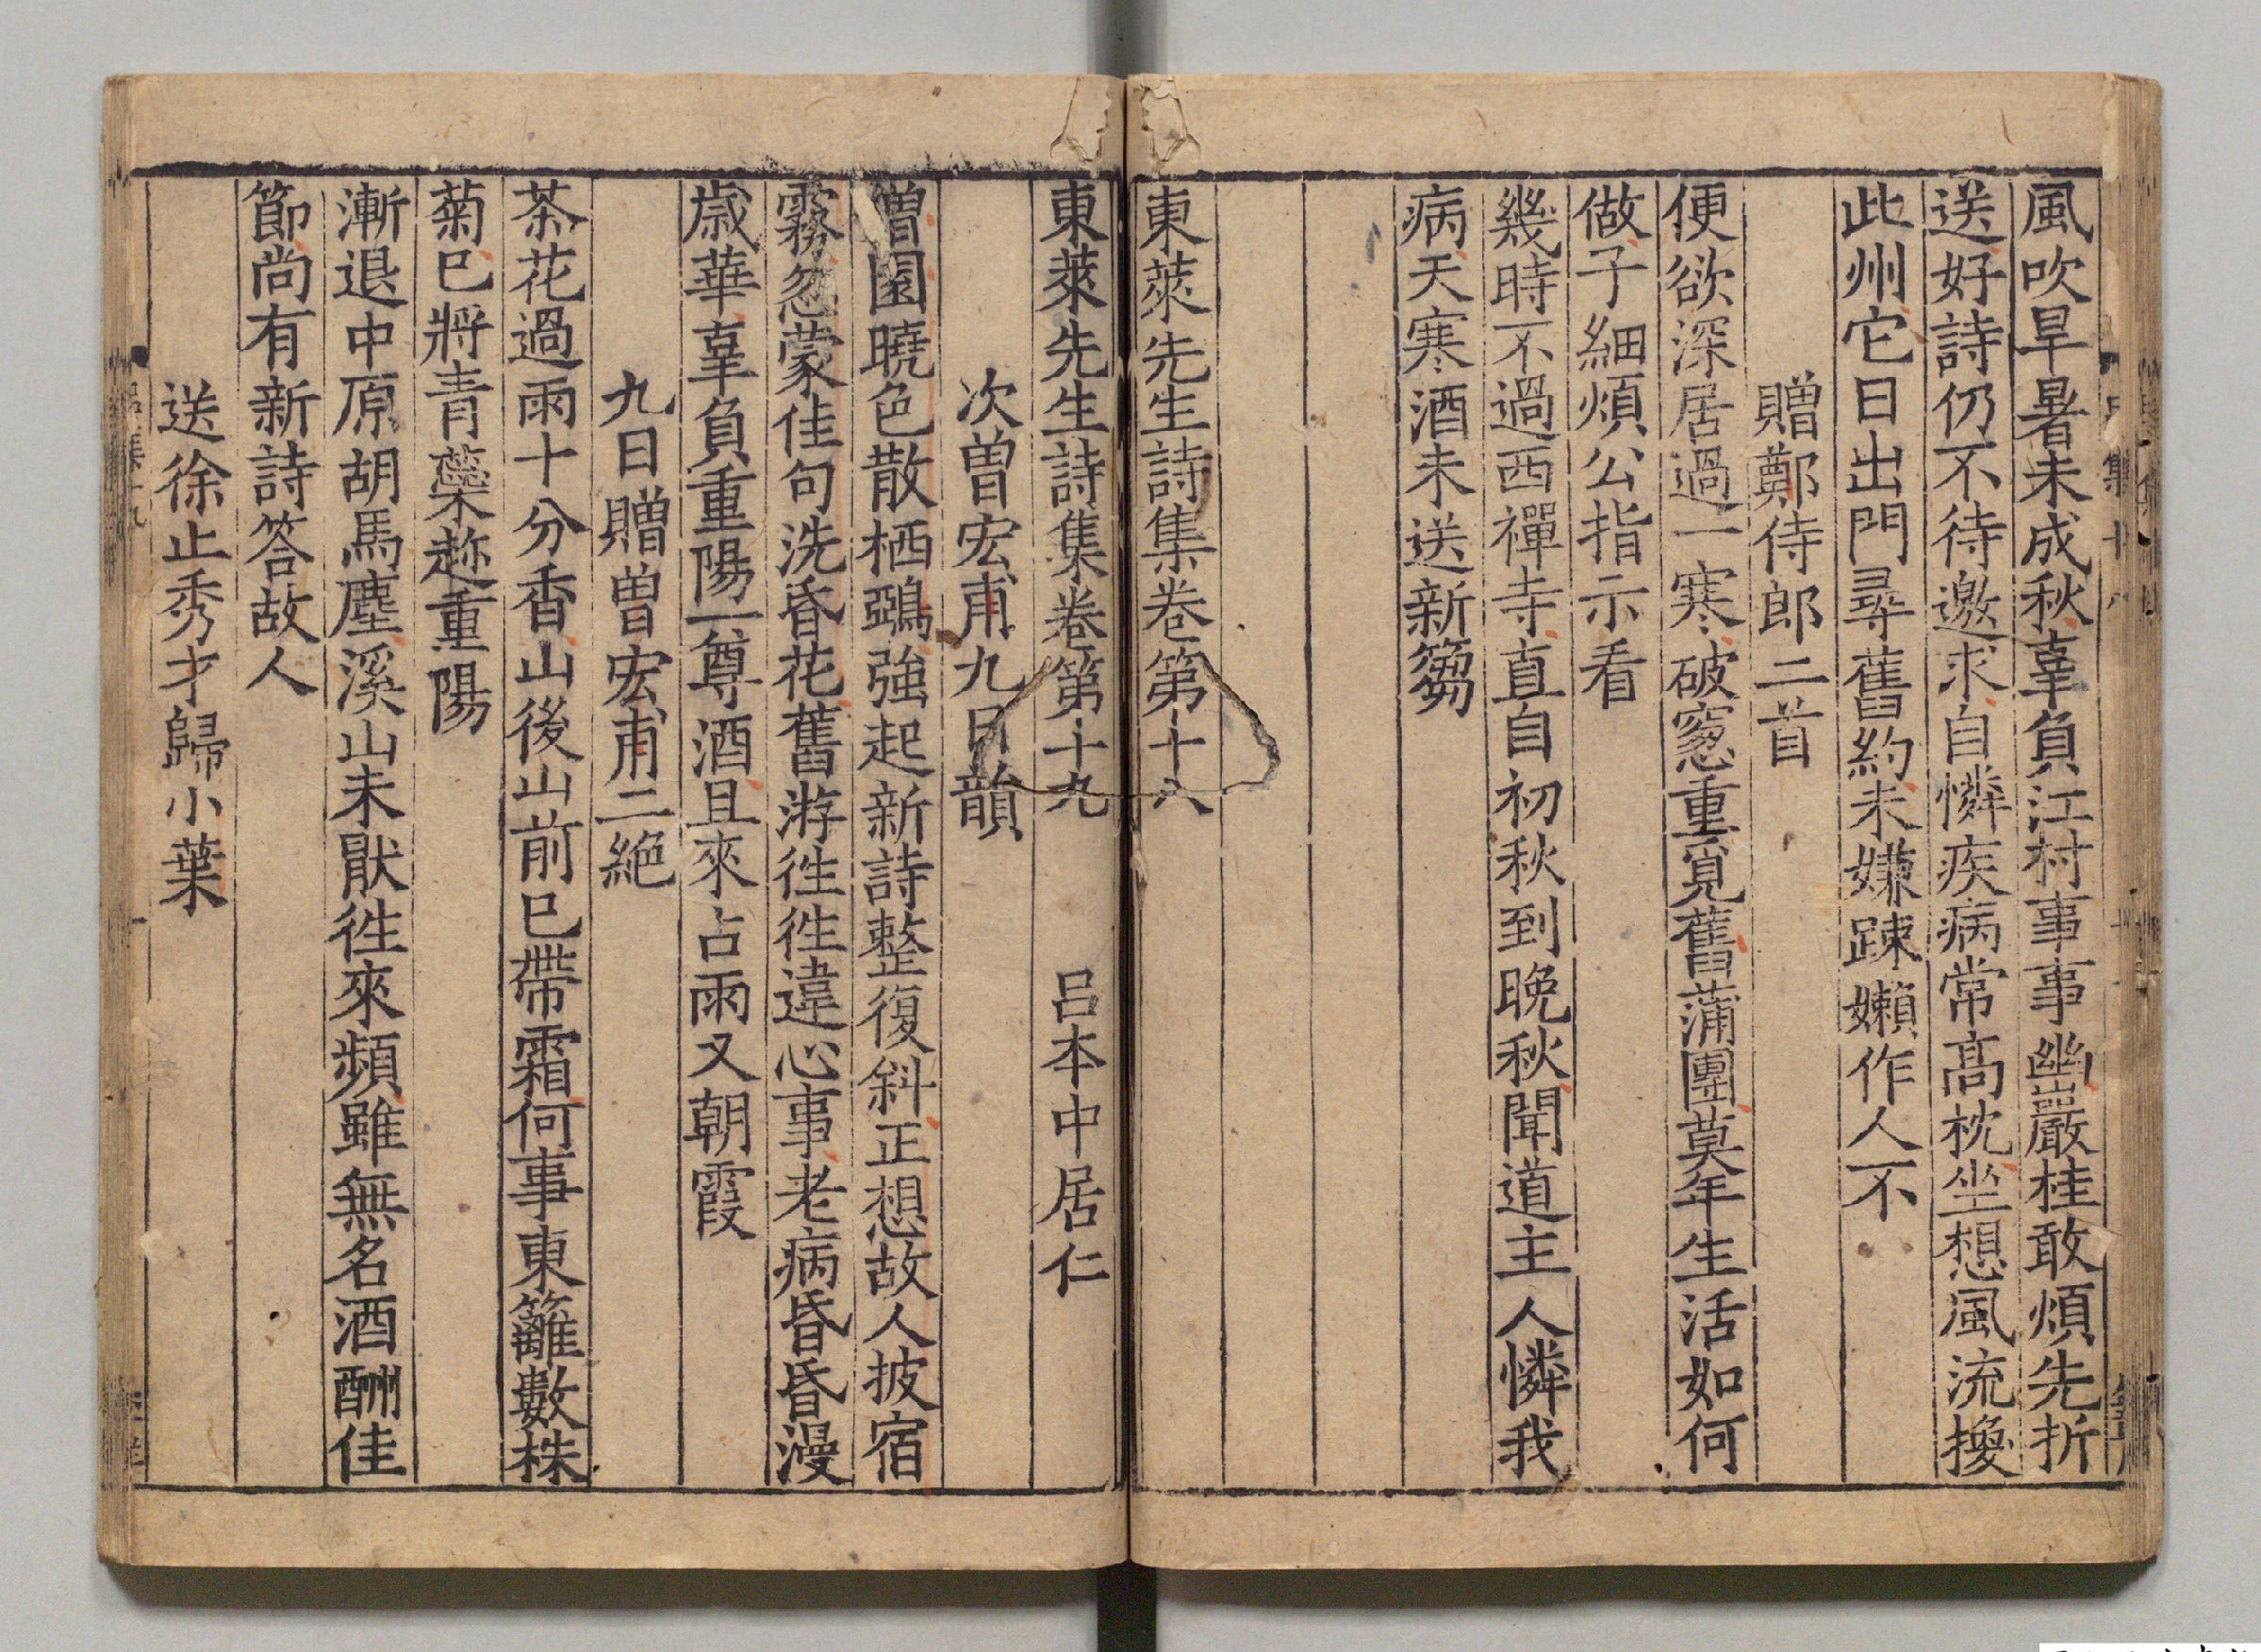 風吹旱暑未成秋辜負江村事事幽巖桂敢煩先折
送好詩仍不待邀求自憐疾病常高枕坐想風流擁
此州它日出門尋舊約未嫌踈嬾作人不
贈鄭侍郎二首
便欲深居過一寒破窓重覓舊蒲團莫年生活如何
做子細煩公指示看
幾時不過西禪寺直自初秋到晚秋聞道主人憐我
病天寒酒未送新篘
東萊先生詩集卷第十八
東萊先生詩集卷第十九 呂本中居仁
次曽宏甫九日韻
曽園曉色散栖鵶強起新詩整復斜正想故人披宿
霧忽蒙佳句洗昏花舊游徃徃違心事老病昏昏漫
歳華辜負重陽一尊酒且來占雨又朝霞
九日贈曽宏甫二絶
茶花過雨十分香山後山前已帶霜何事東籬數株
菊已將青蘂趂重陽
漸退中原胡馬塵溪山未猒徃來頻雖無名酒酬佳
節尚有新詩答故人
送徐止秀才歸小葉